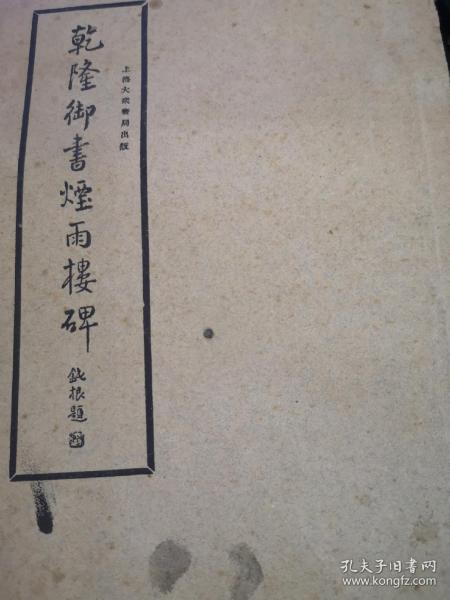 乾隆御書煙雨樓碑
鈍根題
上海大衆書局出版
孔夫子旧书网
www.kongfz.com